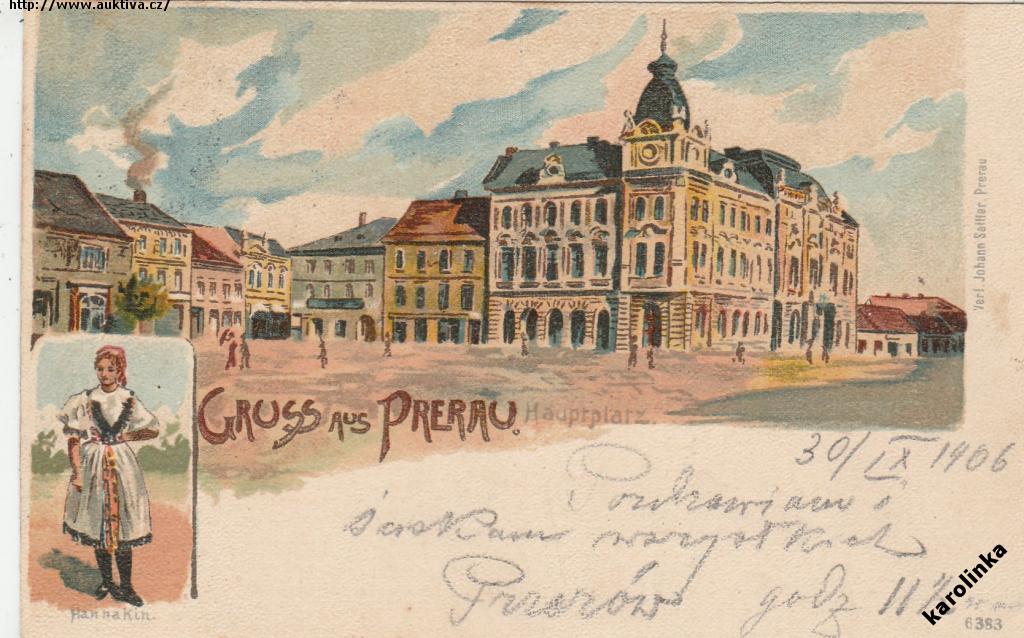 http://www.auktiva.cz/
Verl Johann Sattler Prerau
GRUSS AUS PRERAU.
Hauptplatz.
30/IX 1906
Pozdrawiam i
ściskam wszystkich
Przerów godz 11
Hannakin.
karolinka
6383